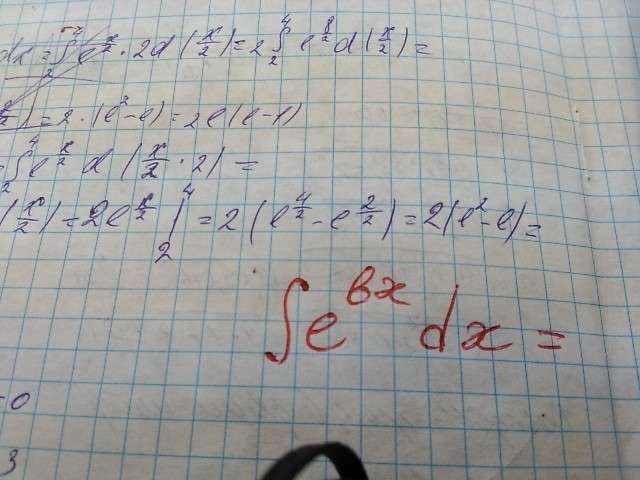 dx = ∫₂⁴ e^{x/2} · 2d(x/2) = 2∫₂⁴ e^{x/2} d(x/2) =
= 2 · (e² - e) = 2e(e - 1)
= ∫₂⁴ e^{x/2} d(x/2 · 2) =
(x/2) = 2e^{x/2} |₂⁴ = 2(e^{4/2} - e^{2/2}) = 2(e² - e) =
∫e^{вx} dx =
-0
3